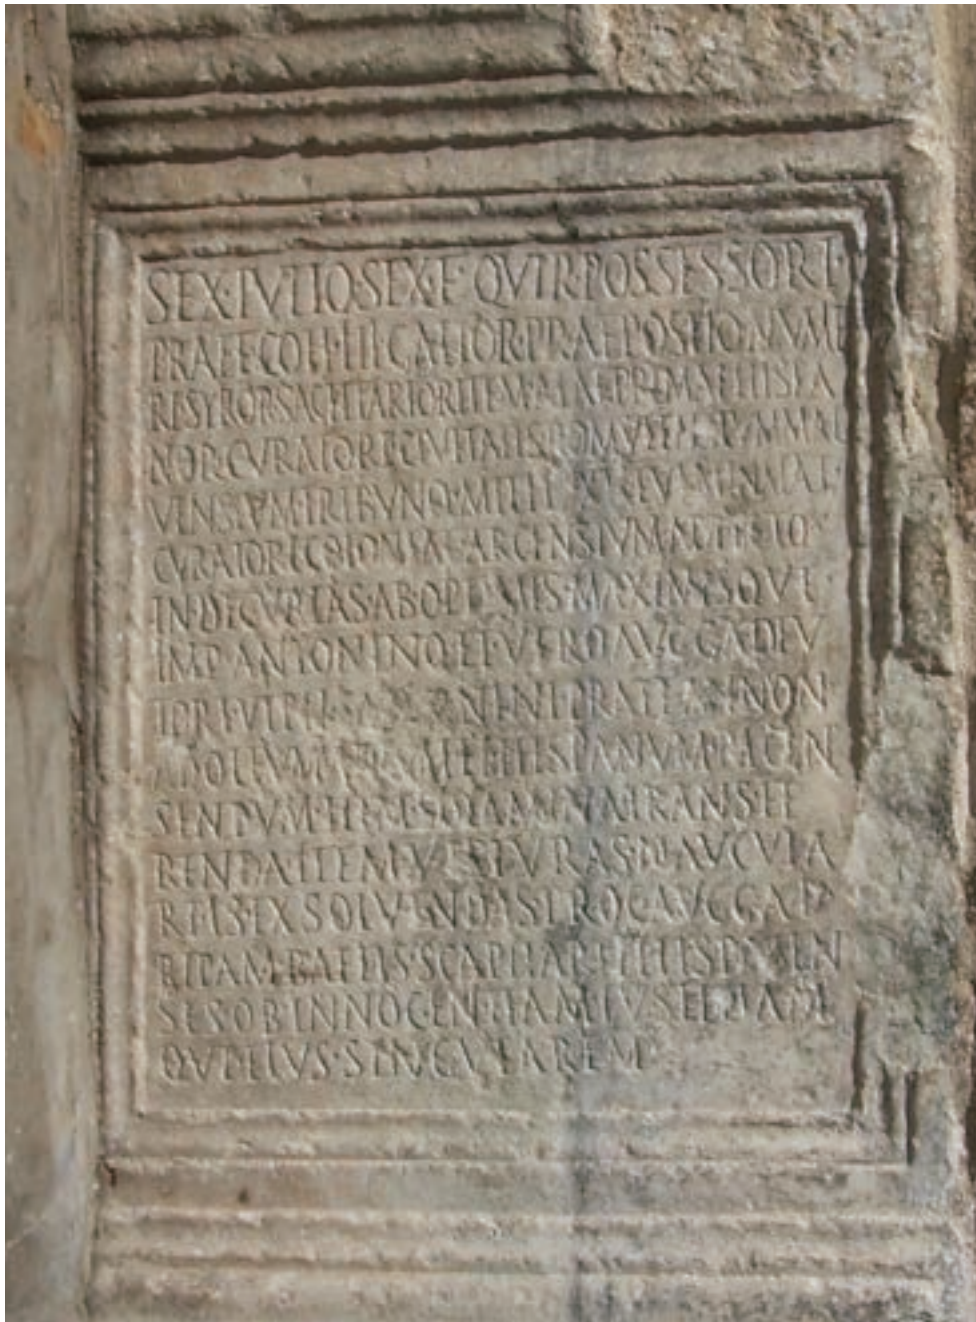 SEX·IVLIO·SEX·F·QVIR·POSSESSORI·
PRAEF·COH·III·GALLOR·PRAEPOSITO·NVME
RI SYROR·SAGITTARIOR·ITEM·ALAE·PRIMAE·HISPA
NOR·CVRATORI·CIVITATIS·ROMVLENSIVM·MAL
VENSIVM·TRIBVNO·MILIT FVLMINAT·
CVRATORI·COLONIAE·ARCENSIVM·ADLECTO·
IN·DECVRIAS·AB OPTIMIS·MAXIMISQVE·
IMP·ANTONINO·ET·VERO·AVGG·ADIV
TORI·VLPII·SATVRNINI·PRAEF·ANNON·
AD·OLEVM·AFRVM·ET·HISPANVM·RECEN
SENDVM·ITEM·SOLAMINA·TRANSFE
RENDA·ITEM·VECTVRAS·NAVICVLA
RIIS·EXSOLVENDAS·PROC·AVGG·AD·
RIPAM·BAETIS·SCAPHARII·HISPALEN
SES·OB·INNOCENTIAM·IVSTITIAM
QVE·EIVS·SINGVLAREM